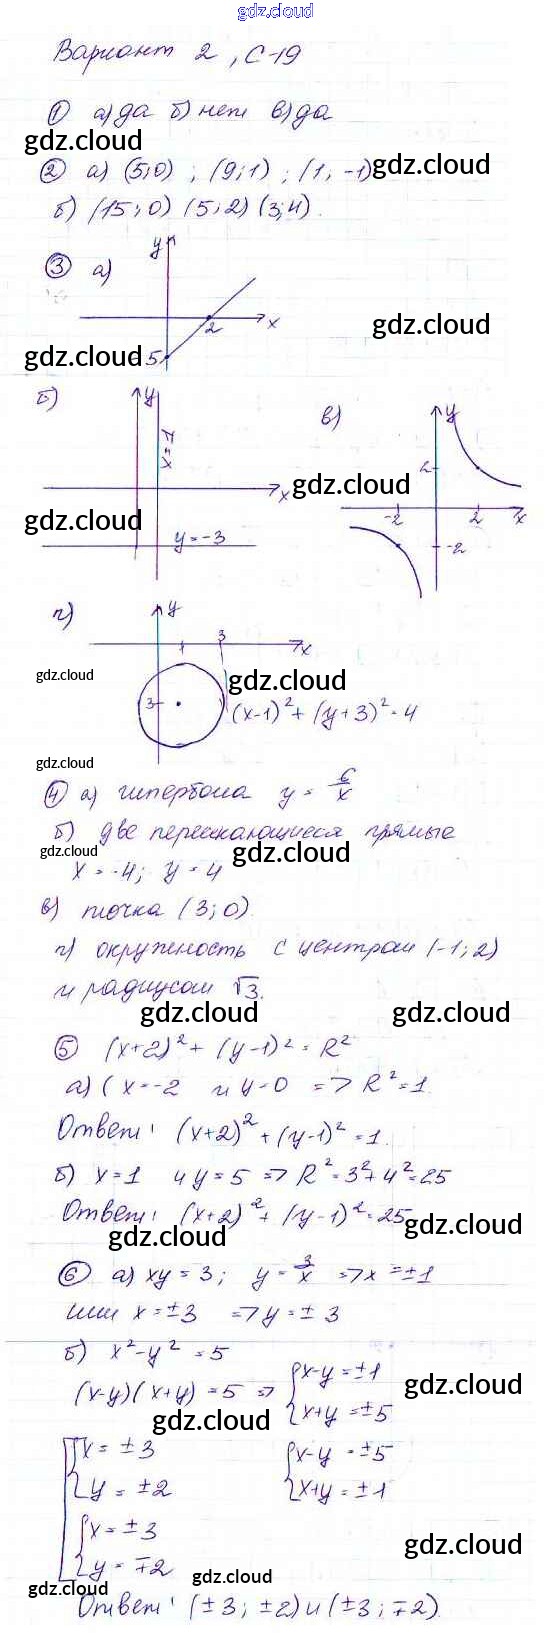 gdz.cloud
Вариант 2, С-19
① а) да б) нет в) да
gdz.cloud
② а) (5;0) ; (9;1) ; (1, -1) gdz.cloud
б) (15;0) (5;2) (3;4).
③ а) y
2 x gdz.cloud
gdz.cloud -5
б) y x=1 в) y
2
x gdz.cloud
gdz.cloud -2 2 x
y=-3 -2
г) y
3 x
gdz.cloud gdz.cloud
3 (x-1)² + (y+3)² = 4
gdz.cloud
④ а) гипербола y = 6/x
б) две пересекающиеся прямые
gdz.cloud gdz.cloud
x = -4; y = 4
в) точка (3;0).
г) окружность с центром (-1;2)
и радиусом √3.
gdz.cloud gdz.cloud
⑤ (x+2)² + (y-1)² = R²
а) ( x=-2 и y=0 => R²=1.
Ответ: (x+2)² + (y-1)² = 1.
б) x=1 и y=5 => R²=3²+4²=25
Ответ: (x+2)² + (y-1)² = 25
gdz.cloud gdz.cloud
⑥ а) xy=3; y=3/x => x=±1
или x=±3 => y=±3
б) x²-y²=5
(x-y)(x+y)=5 => {x-y=±1
x+y=±5 gdz.cloud
gdz.cloud
[{x=±3 {x-y=±5
y=±2 x+y=±1
{x=±3
y=∓2 gdz.cloud
gdz.cloud gdz.cloud
Ответ: (±3; ±2) и (±3; ∓2).